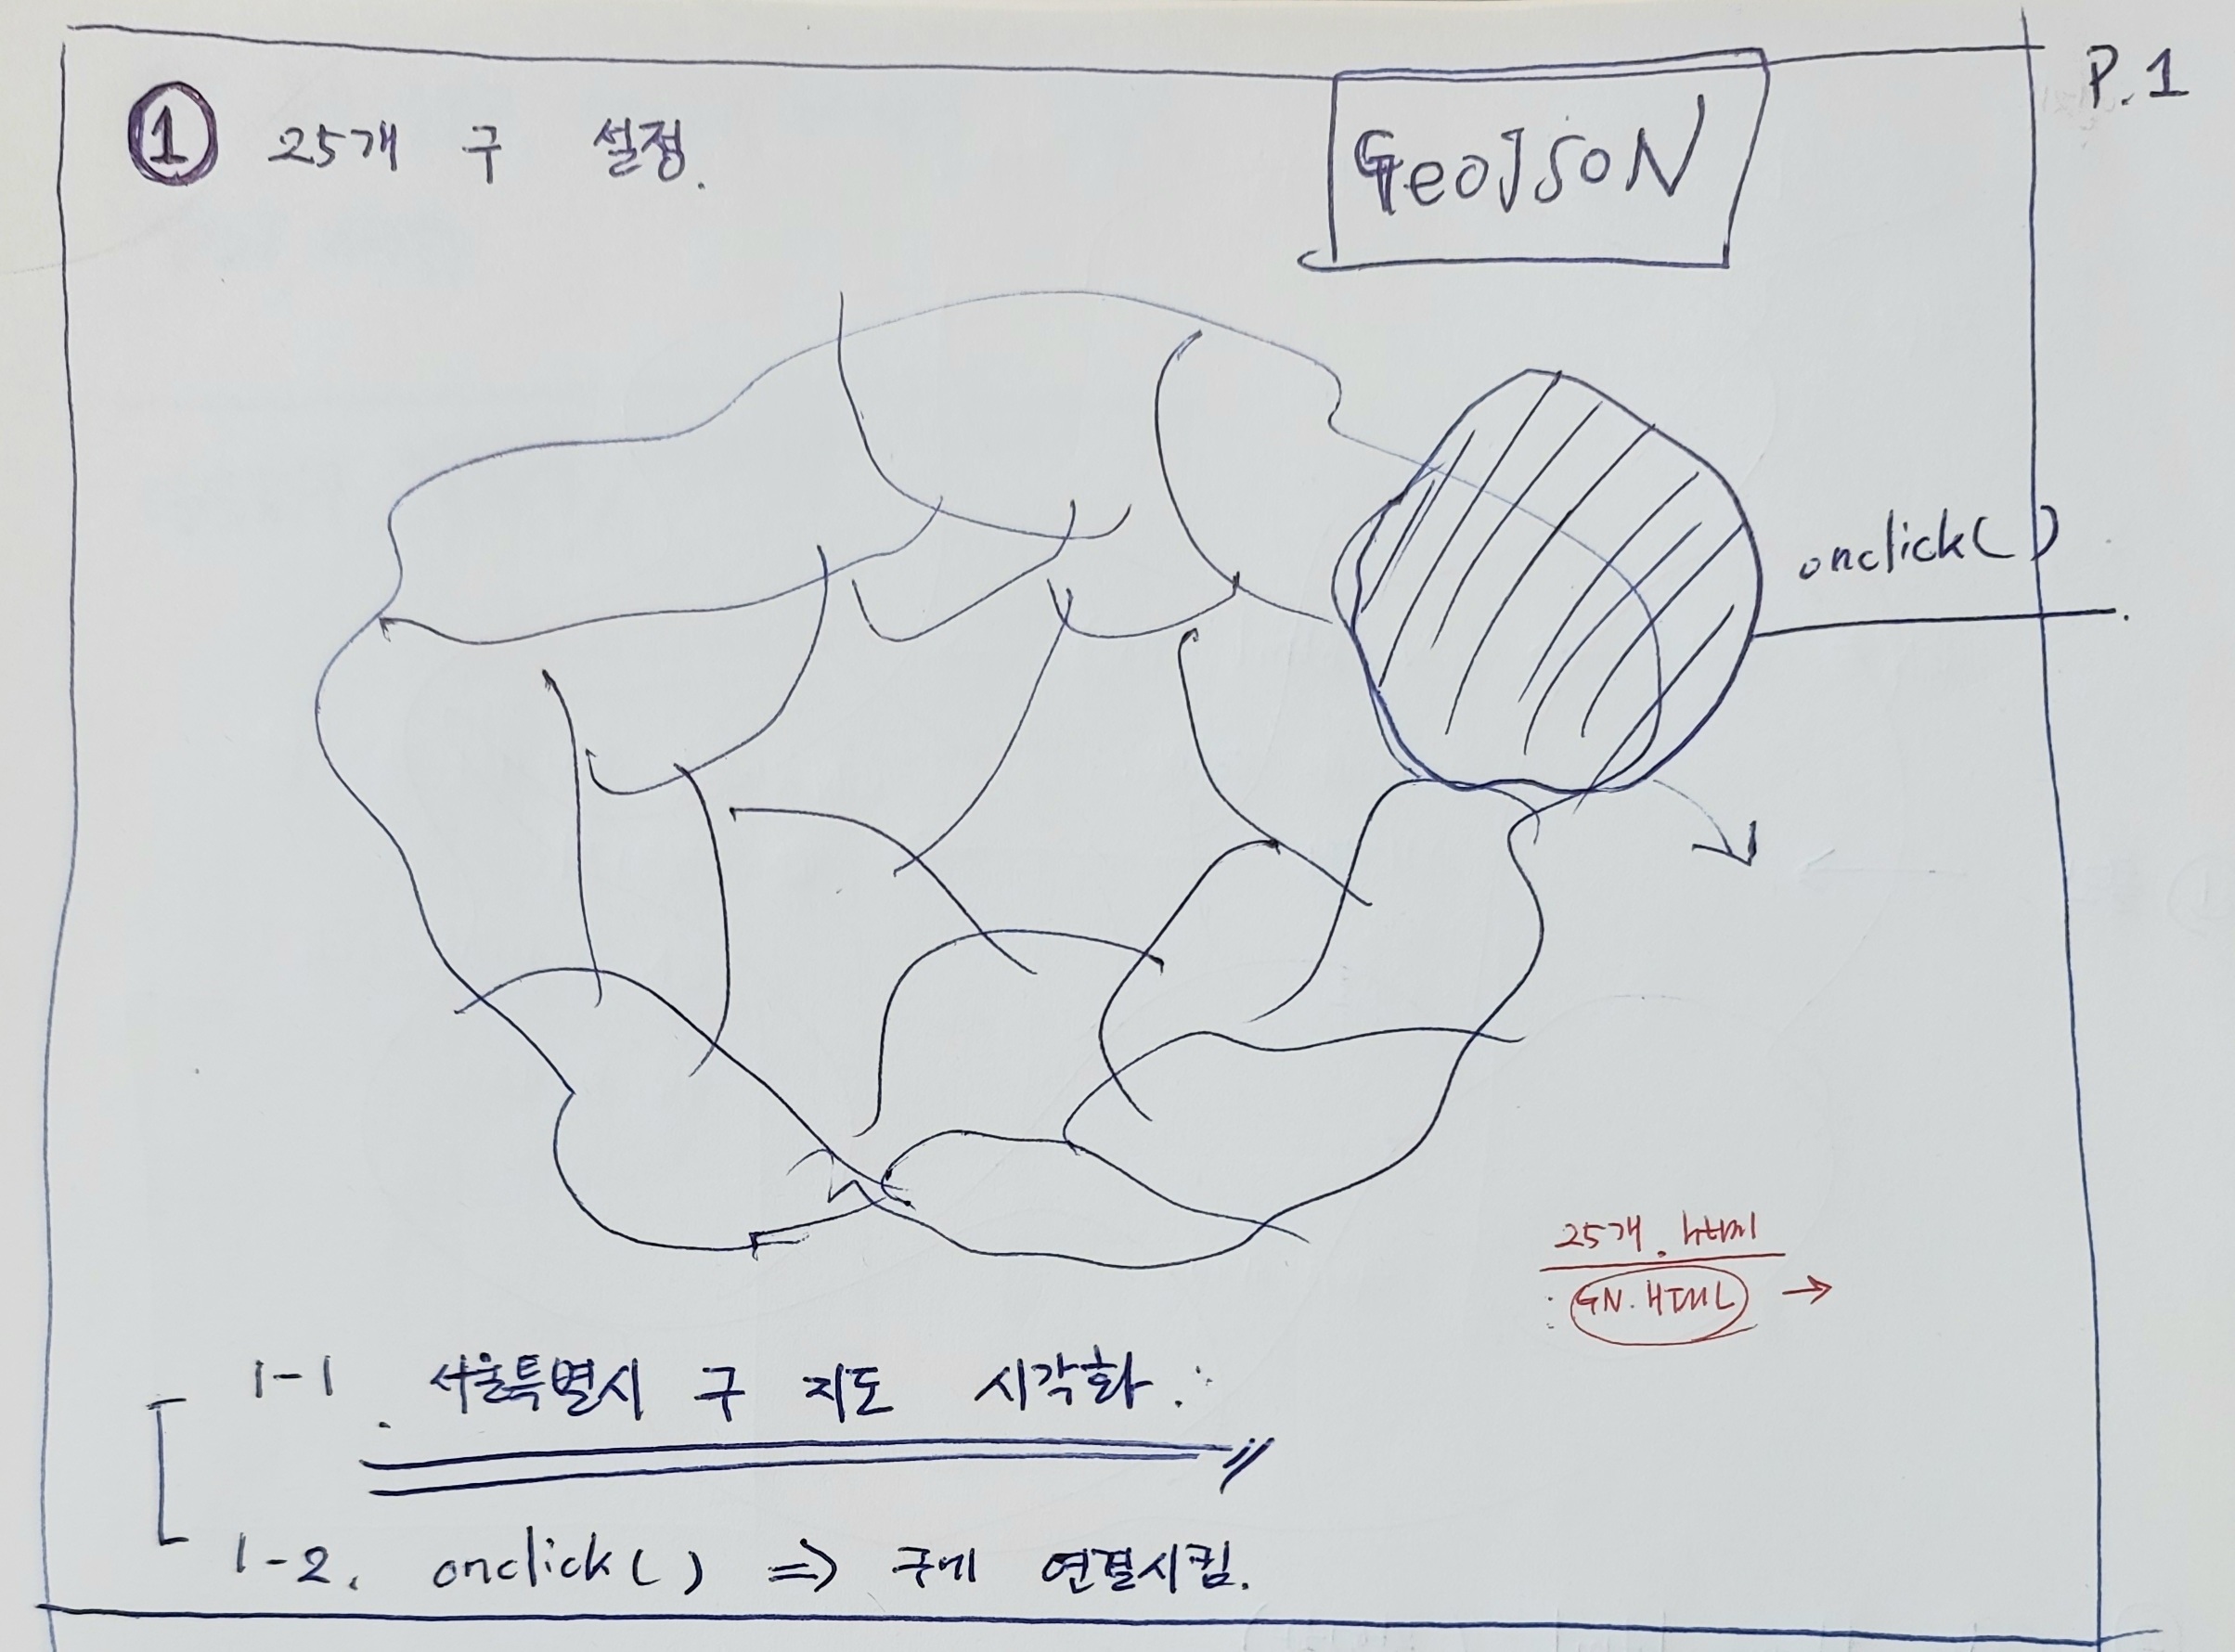 P.1
① 25개 구 설정.
GeoJSoN
onclick( )
25개. html
: GN. HTML →
1-1. 서울특별시 구 지도 시각화.
1-2. onclick( ) ⇒ 구에 연결시킴.